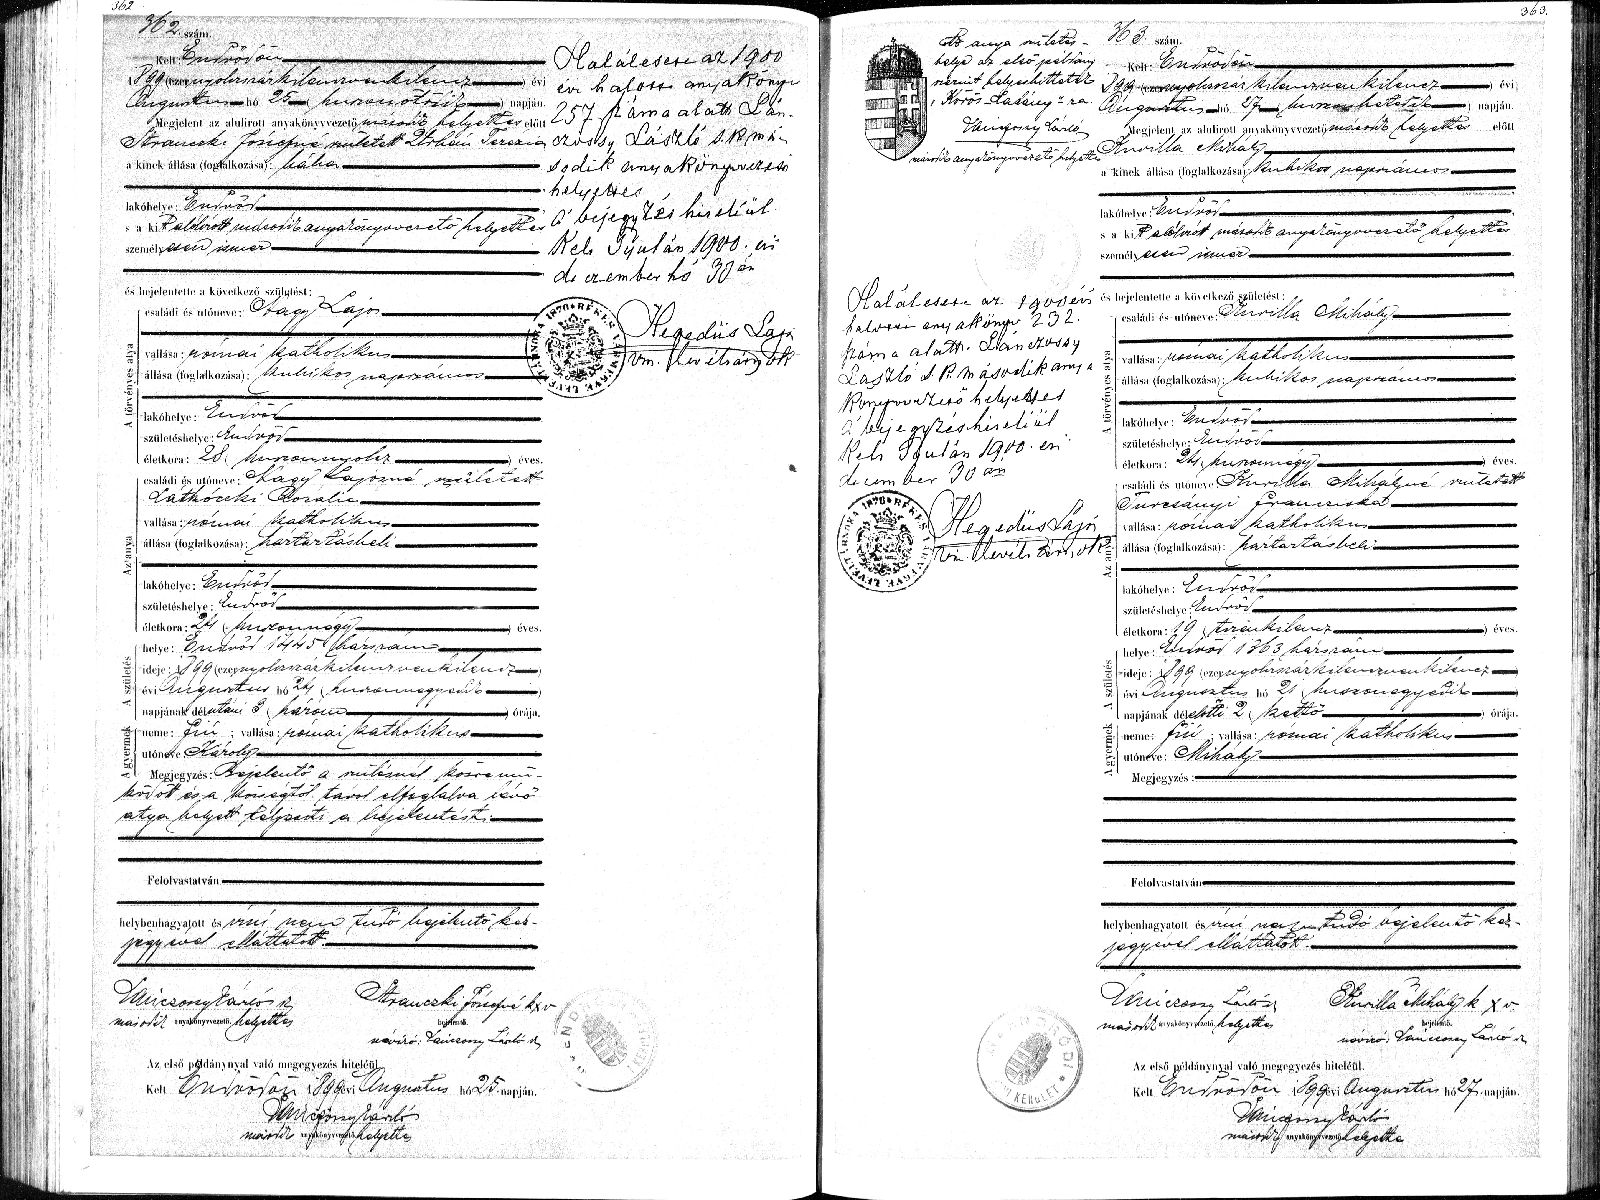 362
362. szám.
Kelt: Endrődön
1899 (ezernyolcszázkilenczvenkilencz) évi
Augustus hó 25 (huszonötödik) napján.
Megjelent az alulirott anyakönyvvezető második helyettes előtt
Stranczki Józsefné született Terezia
a kinek állása (foglalkozása): bába
lakóhelye: Endrőd
s a kit alólirott második anyakönyvvezető helyettes
személyesen ismer
és bejelentette a következő születést:
A törvényes atya
családi és utóneve: Nagy Lajos
vallása: római katholikus
állása (foglalkozása): kubikos napszámos
lakóhelye: Endrőd
születéshelye: Endrőd
életkora: 28 (huszonnyolcz) éves.
Az anya
családi és utóneve: Nagy Lajosné született
Latkóczki Rozalia
vallása: római katholikus
állása (foglalkozása): háztartásbeli
lakóhelye: Endrőd
születéshelye: Endrőd
életkora: 24 (huszonnégy) éves.
A születés
helye: Endrőd 1445 házszám
ideje: 1899 (ezernyolcszázkilenczvenkilencz)
évi Augustus hó 24 (huszonnegyedik)
napjának délutáni 3 (három) órája.
A gyermek
neme: fiú; vallása: római katholikus
utóneve: Károly
Megjegyzés: Bejelentő a szülésnél közremű-
ködött és a községtől távol elfoglalva lévő
atya helyett teljesíti a bejelentést.
Felolvastatván
helybenhagyatott és írni nem tudó bejelentő kéz-
jegyével elláttatott.
második anyakönyvvezető. helyettes
Stranczki Józsefné k x v
bejelentő.
névíró:
Az első példánynyal való megegyezés hiteléül.
Kelt Endrődön 1899 évi Augustus hó 25 napján.
második anyakönyvvezető helyettes
Halálesete az 1900
évi halotti anyakönyv
257 száma alatt Lán-
czossy László s.k. má-
sodik anyakönyvvezető
helyettes
a bejegyzés hiteléül.
Kelt Gyulán 1900. évi
deczember hó 30 án
Hegedüs Lajos
vm. levéltárnok
363.
363 szám.
Az anya születés-
helye az első példány
szerint helyesbittetett
"Körös-Ladány"-ra
második anyakönyvvezető helyettes
Kelt: Endrődön
1899 (ezernyolcszázkilenczvenkilencz) évi
Augustus hó 27 (huszonhetedik) napján.
Megjelent az alulirott anyakönyvvezető második helyettes előtt
Kurilla Mihály
a kinek állása (foglalkozása): kubikos napszámos
lakóhelye: Endrőd
s a kit alólirott második anyakönyvvezető helyettes
személyesen ismer
és bejelentette a következő születést:
A törvényes atya
családi és utóneve: Kurilla Mihály
vallása: római katholikus
állása (foglalkozása): kubikos napszámos
lakóhelye: Endrőd
születéshelye: Endrőd
életkora: 24 (huszonnégy) éves.
Az anya
családi és utóneve Kurilla Mihályné született
Turcsányi Franciska
vallása: római katholikus
állása (foglalkozása): háztartásbeli
lakóhelye: Endrőd
születéshelye: Endrőd
életkora: 19 (tizenkilencz) éves.
A születés
helye: Endrőd 1363 házszám
ideje: 1899 (ezernyolcszázkilenczvenkilencz)
évi Augusztus hó 21 (huszonegyedik)
napjának délelőtti 2 (kettő) órája.
A gyermek
neme: fiú; vallása: római katholikus
utóneve: Mihály
Megjegyzés:
Felolvastatván
helybenhagyatott és írni nem tudó bejelentő kéz-
jegyével elláttatott.
második anyakönyvvezető. helyettes
Kurilla Mihály k x v.
bejelentő.
névíró:
Az első példánynyal való megegyezés hiteléül.
Kelt Endrődön 1899 évi Augustus hó 27 napján.
második anyakönyvvezető helyettes
Halálesete az 1900 évi
halotti anyakönyv 232.
száma alatt. Lánczossy
László s.k. második anya
könyvvezető helyettes
a bejegyzés hiteléül
Kelt Gyulán 1900. évi
december 30 án
Hegedüs Lajos
vm. levéltárnok